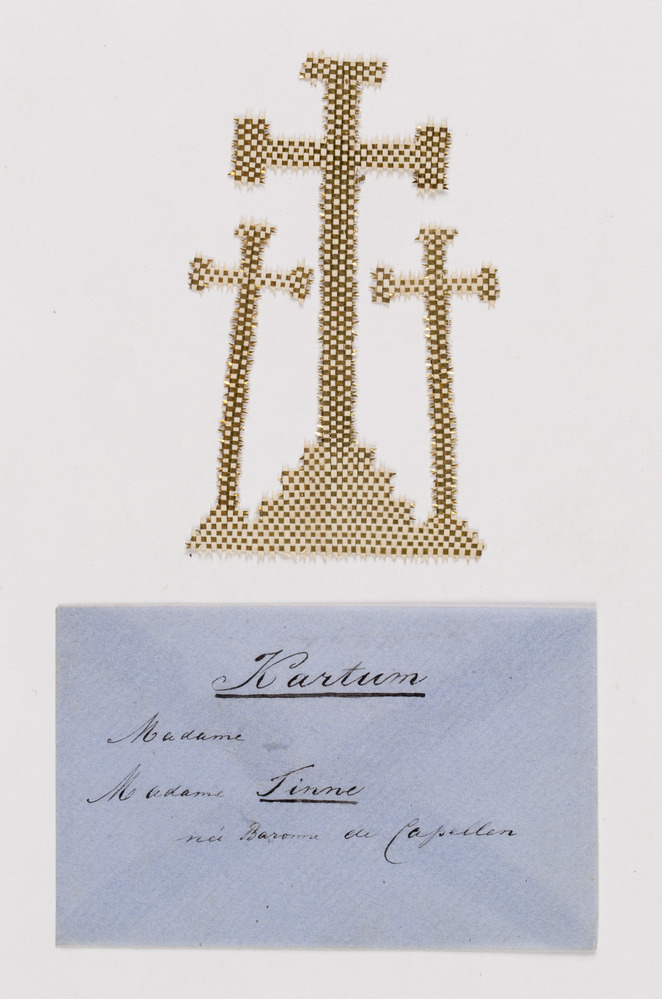 Kartum
Madame
Madame Tinne
née Baronne de Capellen